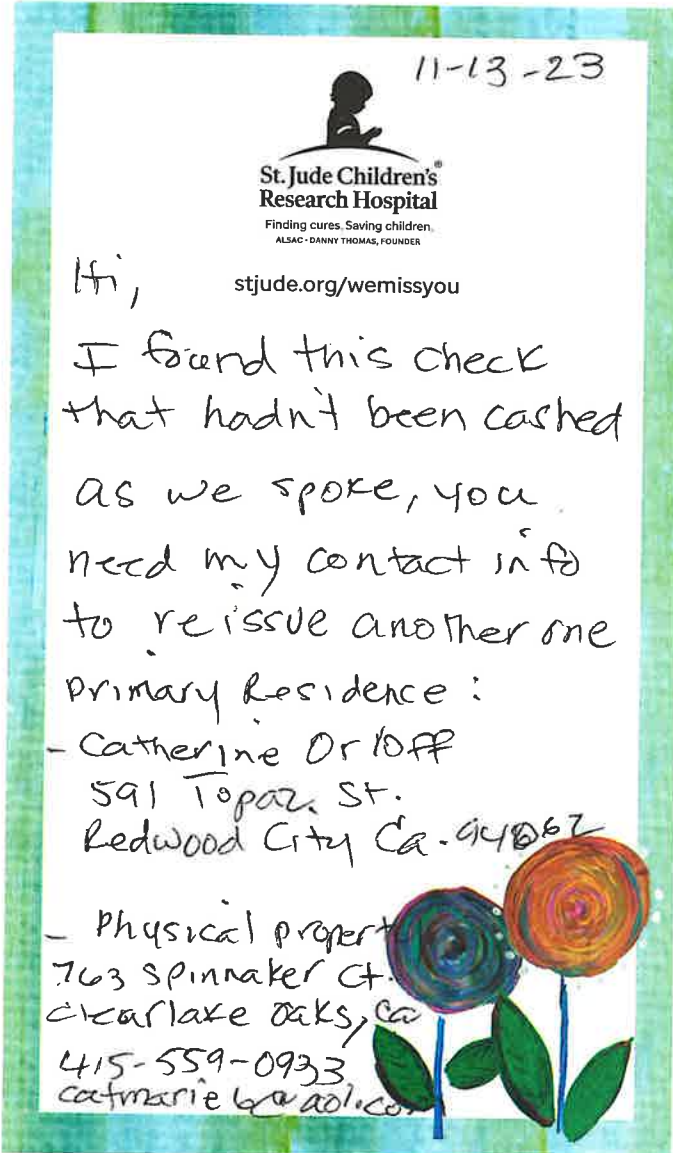 11-13-23
St. Jude Children's®
Research Hospital
Finding cures. Saving children.
ALSAC • DANNY THOMAS, FOUNDER
stjude.org/wemissyou
Hi,
I found this check
that hadn't been cashed
as we spoke, you
need my contact info
to reissue another one
Primary Residence:
- Catherine Orloff
591 Topaz St.
Redwood City Ca. 94062
- Physical propert
763 Spinnaker Ct.
Clearlake Oaks, Ca
415-559-0933
catmarie6@aol.com